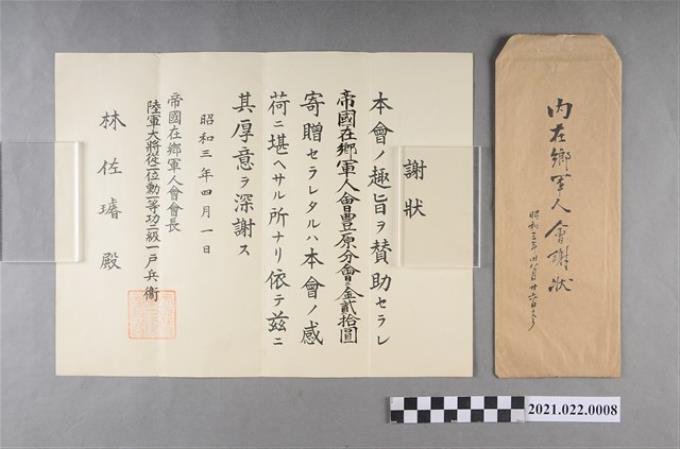 謝狀
本會ノ趣旨ヲ賛助セラレ
帝國在鄉軍人會豐原分會ヘ金貳拾圓
寄贈セラレタルハ本會ノ感
荷ニ堪ヘサル所ナリ依テ茲ニ
其厚意ヲ深謝ス
昭和三年四月一日
帝國在鄉軍人會會長
陸軍大將從二位勳一等功二級一戶兵衞
林佐璿殿
內在鄉軍人會謝狀
昭和三年
2021.022.0008